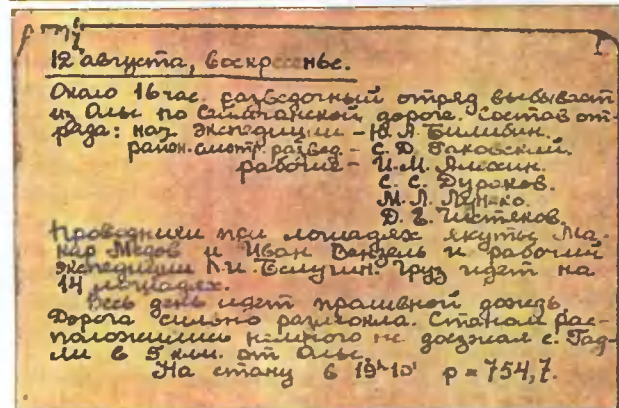 12 августа, воскресенье.
Около 16 час. разведочный отряд выбывает
из Олы по Сеймчанской дороге. Состав от-
ряда: нач. экспедиции – Ю.А. Билибин.
район. смотр. развед. – С.Д. Раковский.
рабочие – И.М. Алехин.
С.С. Дураков.
М.Л. Лунеко.
Д.Е. Чистяков.
Проводники при лошадях якуты Ма-
кар Медов и Иван Вензель и рабочий
экспедиции П.И. Белугин. Груз идет на
14 лошадях.
Весь день идет проливной дождь.
Дорога сильно размокла. Станом рас-
положились немного не доезжая с. Гад-
ли в 5 клм. от Олы.
На стану в 19ч 10' p = 754,7.